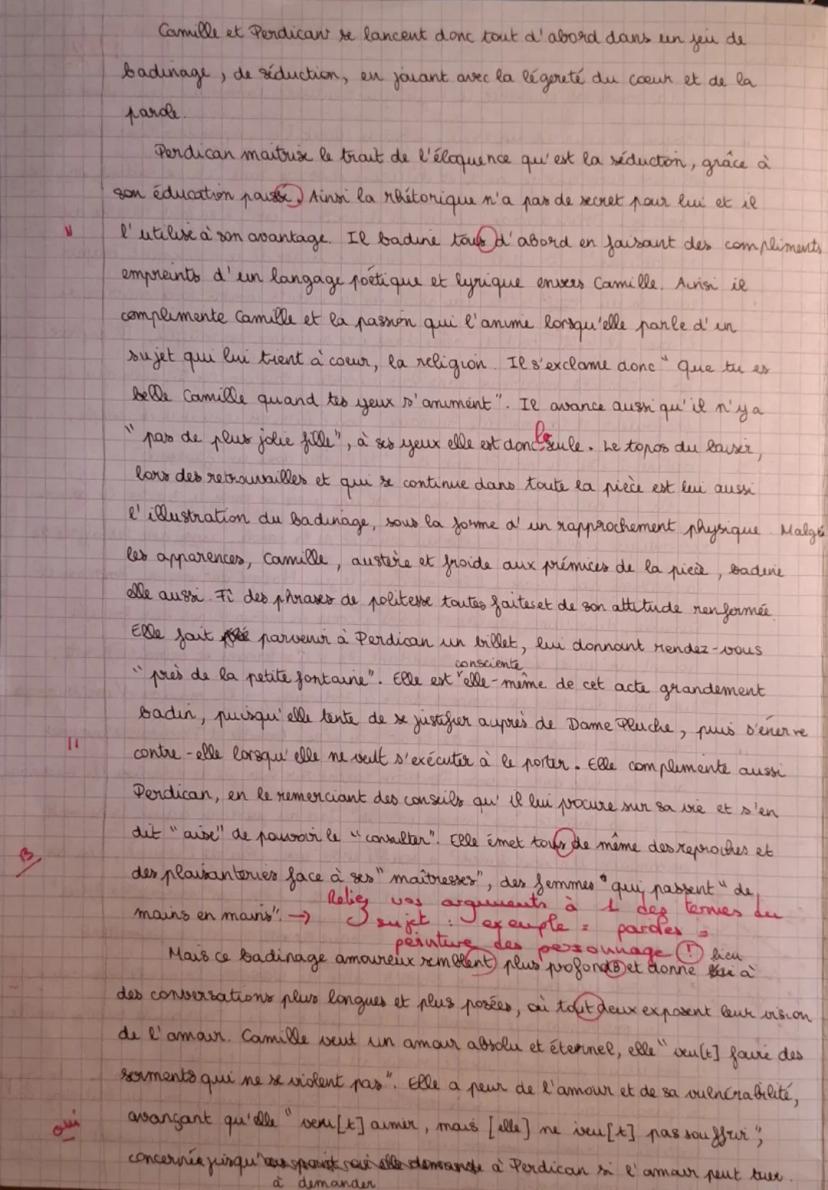 Camille et Perdican se lancent donc tout d'abord dans un jeu de
badinage, de séduction, en jouant avec la légereté du coeur et de la
parole.
Perdican maitrise le trait de l'éloquence qu'est la séduction, grâce à
son éducation . Ainsi la rhétorique n'a pas de secret pour lui et il
v l'utilise à son avantage. Il badine tous d'abord en faisant des compliments
empreints d'un langage poétique et lyrique envers Camille. Ainsi il
complimente Camille et la passion qui l'anime lorsqu'elle parle d'un
sujet qui lui tient à coeur, la religion. Il s'exclame donc "Que tu es
belle Camille quand tes yeux s'animent". Il avance aussi qu'il n'y a
"pas de plus jolie fille", à ses yeux elle est donc la seule. Le topos du baiser,
lors des retrouvailles et qui se continue dans toute la pièce est lui aussi
l'illustration du badinage, sous la forme d'un rapprochement physique. Malgé
les apparences, Camille, austère et froide aux prémices de la pièce, badine
elle aussi. Fi des phrases de politesse toutes faites et de son attitude renfermée.
Elle fait parvenir à Perdican un billet, lui donnant rendez-vous
"près de la petite fontaine". Elle est consciente elle-même de cet acte grandement
badin, puisqu'elle tente de se justifier auprès de Dame Pluche, puis s'énerve
contre-elle lorsqu'elle ne veut s'exécuter à le porter. Elle complimente aussi
Perdican, en le remerciant des conseils qu'il lui procure sur sa vie et s'en
dit "aise" de pouvoir le "consulter". Elle émet tous de même des reproches et
B des plaisanteries face à ses "maîtresses", des femmes "qui passent" de
mains en mains". → Reliez vos arguments à 1 des termes du
sujet : exemple = paroles =
peinture des personnage !
Mais ce badinage amoureux semblent plus profonds et donne lieu à
des conversations plus longues et plus posées, où tout deux exposent leur vision
de l'amour. Camille veut un amour absolu et éternel, elle "veu[t] faire des
serments qui ne se violent pas". Elle a peur de l'amour et de sa vulnérabilité,
oui avançant qu'elle "veu[t] aimer, mais [elle] ne veu[t] pas souffrir",
concernée jusqu' à demander à Perdican si l'amour peut tuer.